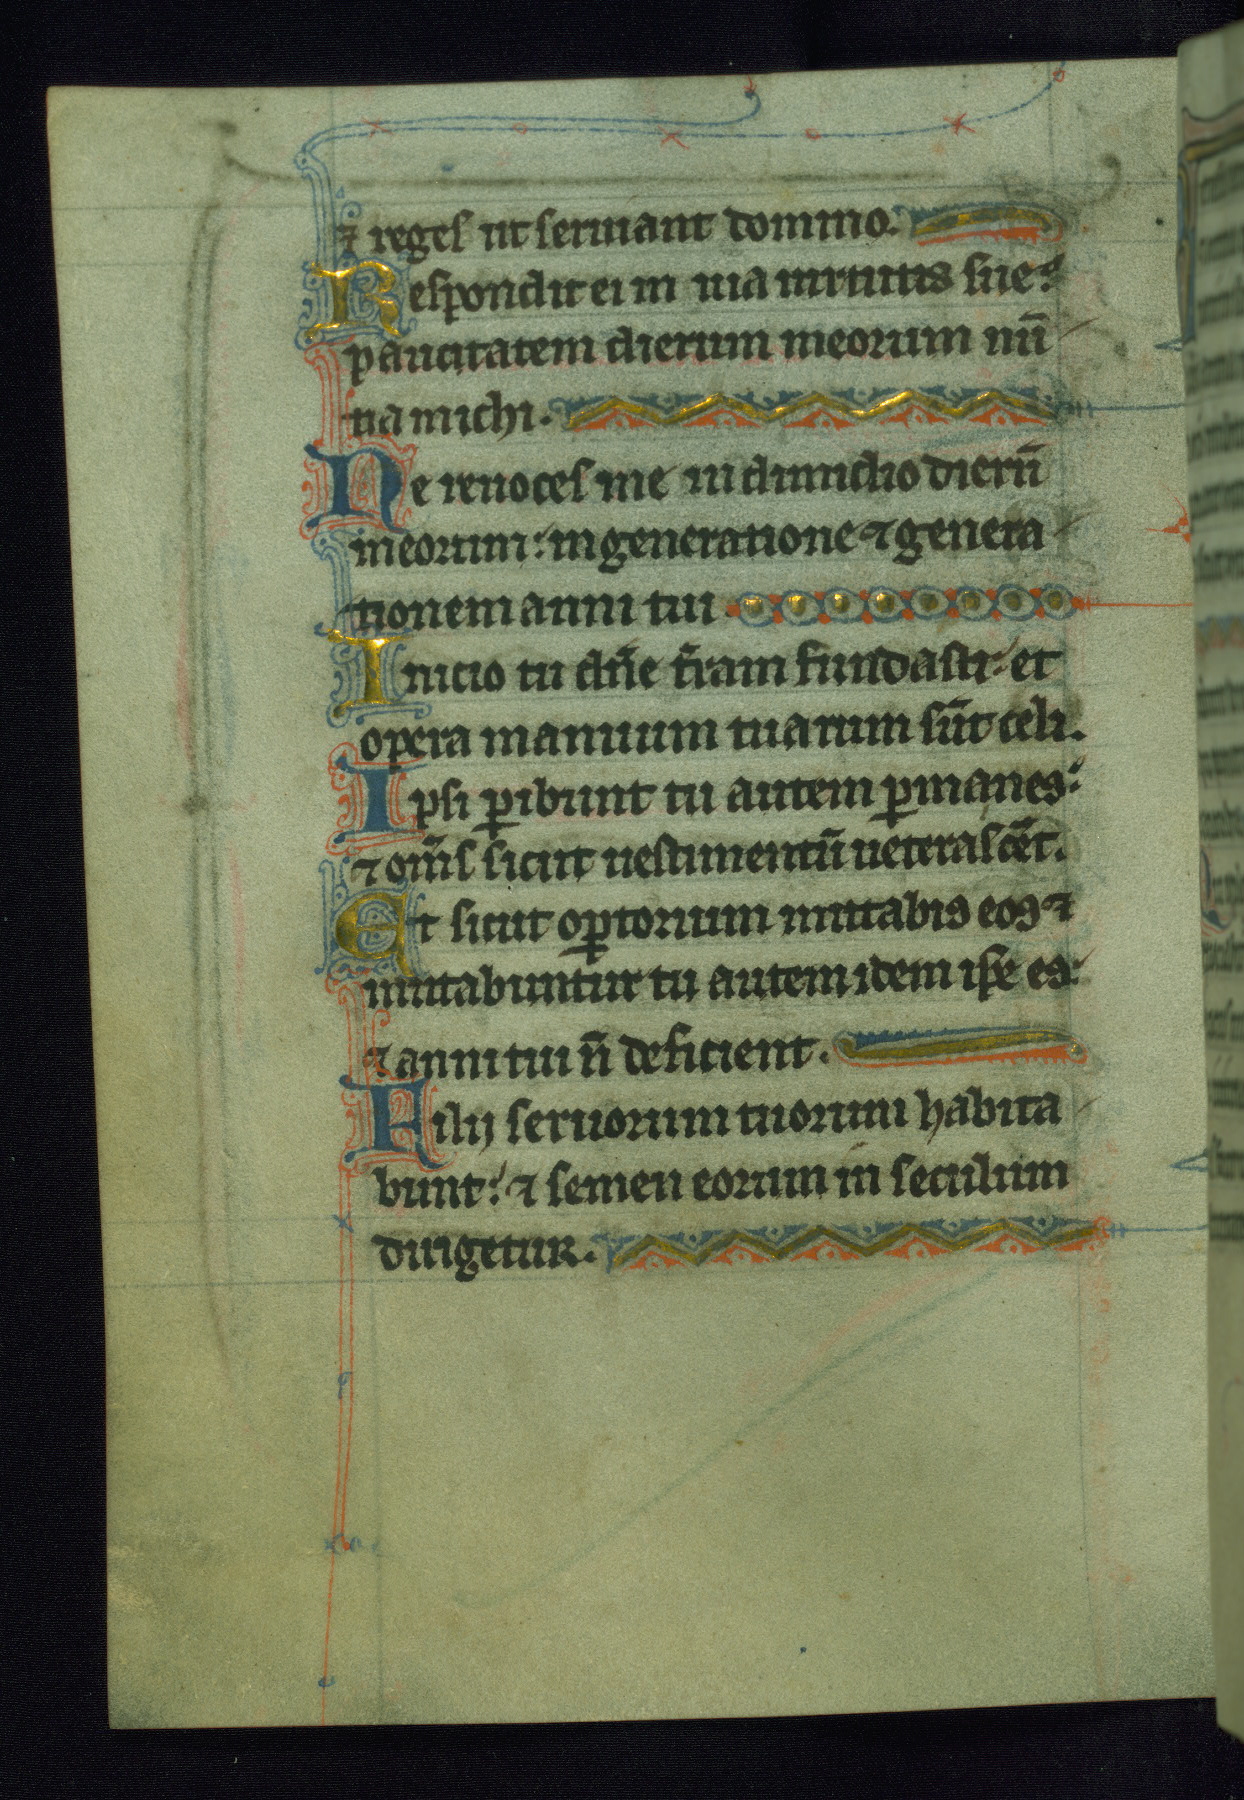 ⁊ reges ut seruiant domino.
Respondit ei in uia uirtutis sue:
paucitatem dierum meorum nū
na michi.
Ne reuoces me in dimidio dierū
meorum: in generatione ⁊ genera
tionem anni tui.
Inicio tu dn̄e t̄ram fundasti: et
opera manuum tuarum sūt celi.
Ipsi ꝑibunt tu autem ꝑmanes:
⁊ om̄s sicut uestimentū ueterascēt.
Et sicut oꝑtorium mutabis eos ⁊
mutabuntur tu autem idem ipse es:
⁊ anni tui n̄ deficient.
Filij seruorum tuorum habita
bunt: ⁊ semen eorum in seculum
dirigetur.